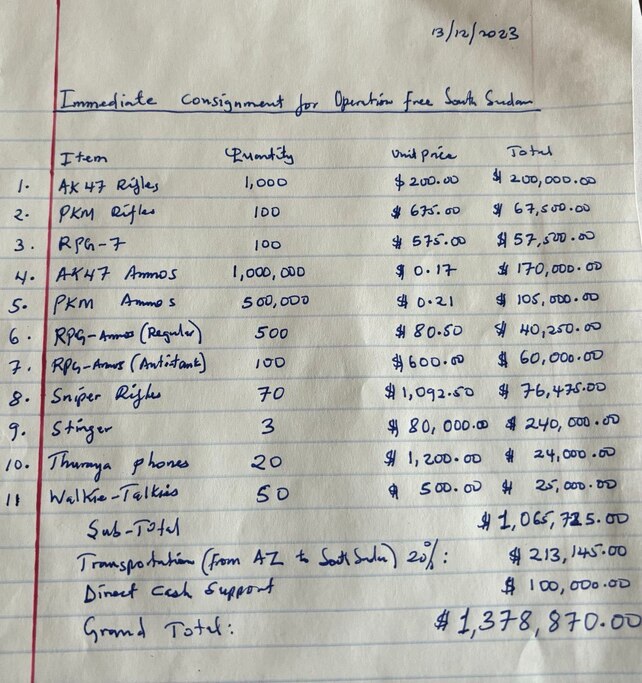 13/12/2023
Immediate Consignment for Operation Free South Sudan
Item Quantity Unit Price Total
1. AK47 Rifles 1,000 $200.00 $200,000.00
2. PKM Rifles 100 $675.00 $67,500.00
3. RPG-7 100 $575.00 $57,500.00
4. AK47 Ammos 1,000,000 $0.17 $170,000.00
5. PKM Ammos 500,000 $0.21 $105,000.00
6. RPG-Ammos (Regular) 500 $80.50 $40,250.00
7. RPG-Ammos (Antitank) 100 $600.00 $60,000.00
8. Sniper Rifles 70 $1,092.50 $76,475.00
9. Stinger 3 $80,000.00 $240,000.00
10. Thuraya phones 20 $1,200.00 $24,000.00
11 Walkie-Talkies 50 $500.00 $25,000.00
Sub-Total $1,065,725.00
Transportation (from AZ to South Sudan) 20%: $213,145.00
Direct Cash Support $100,000.00
Grand Total: $1,378,870.00